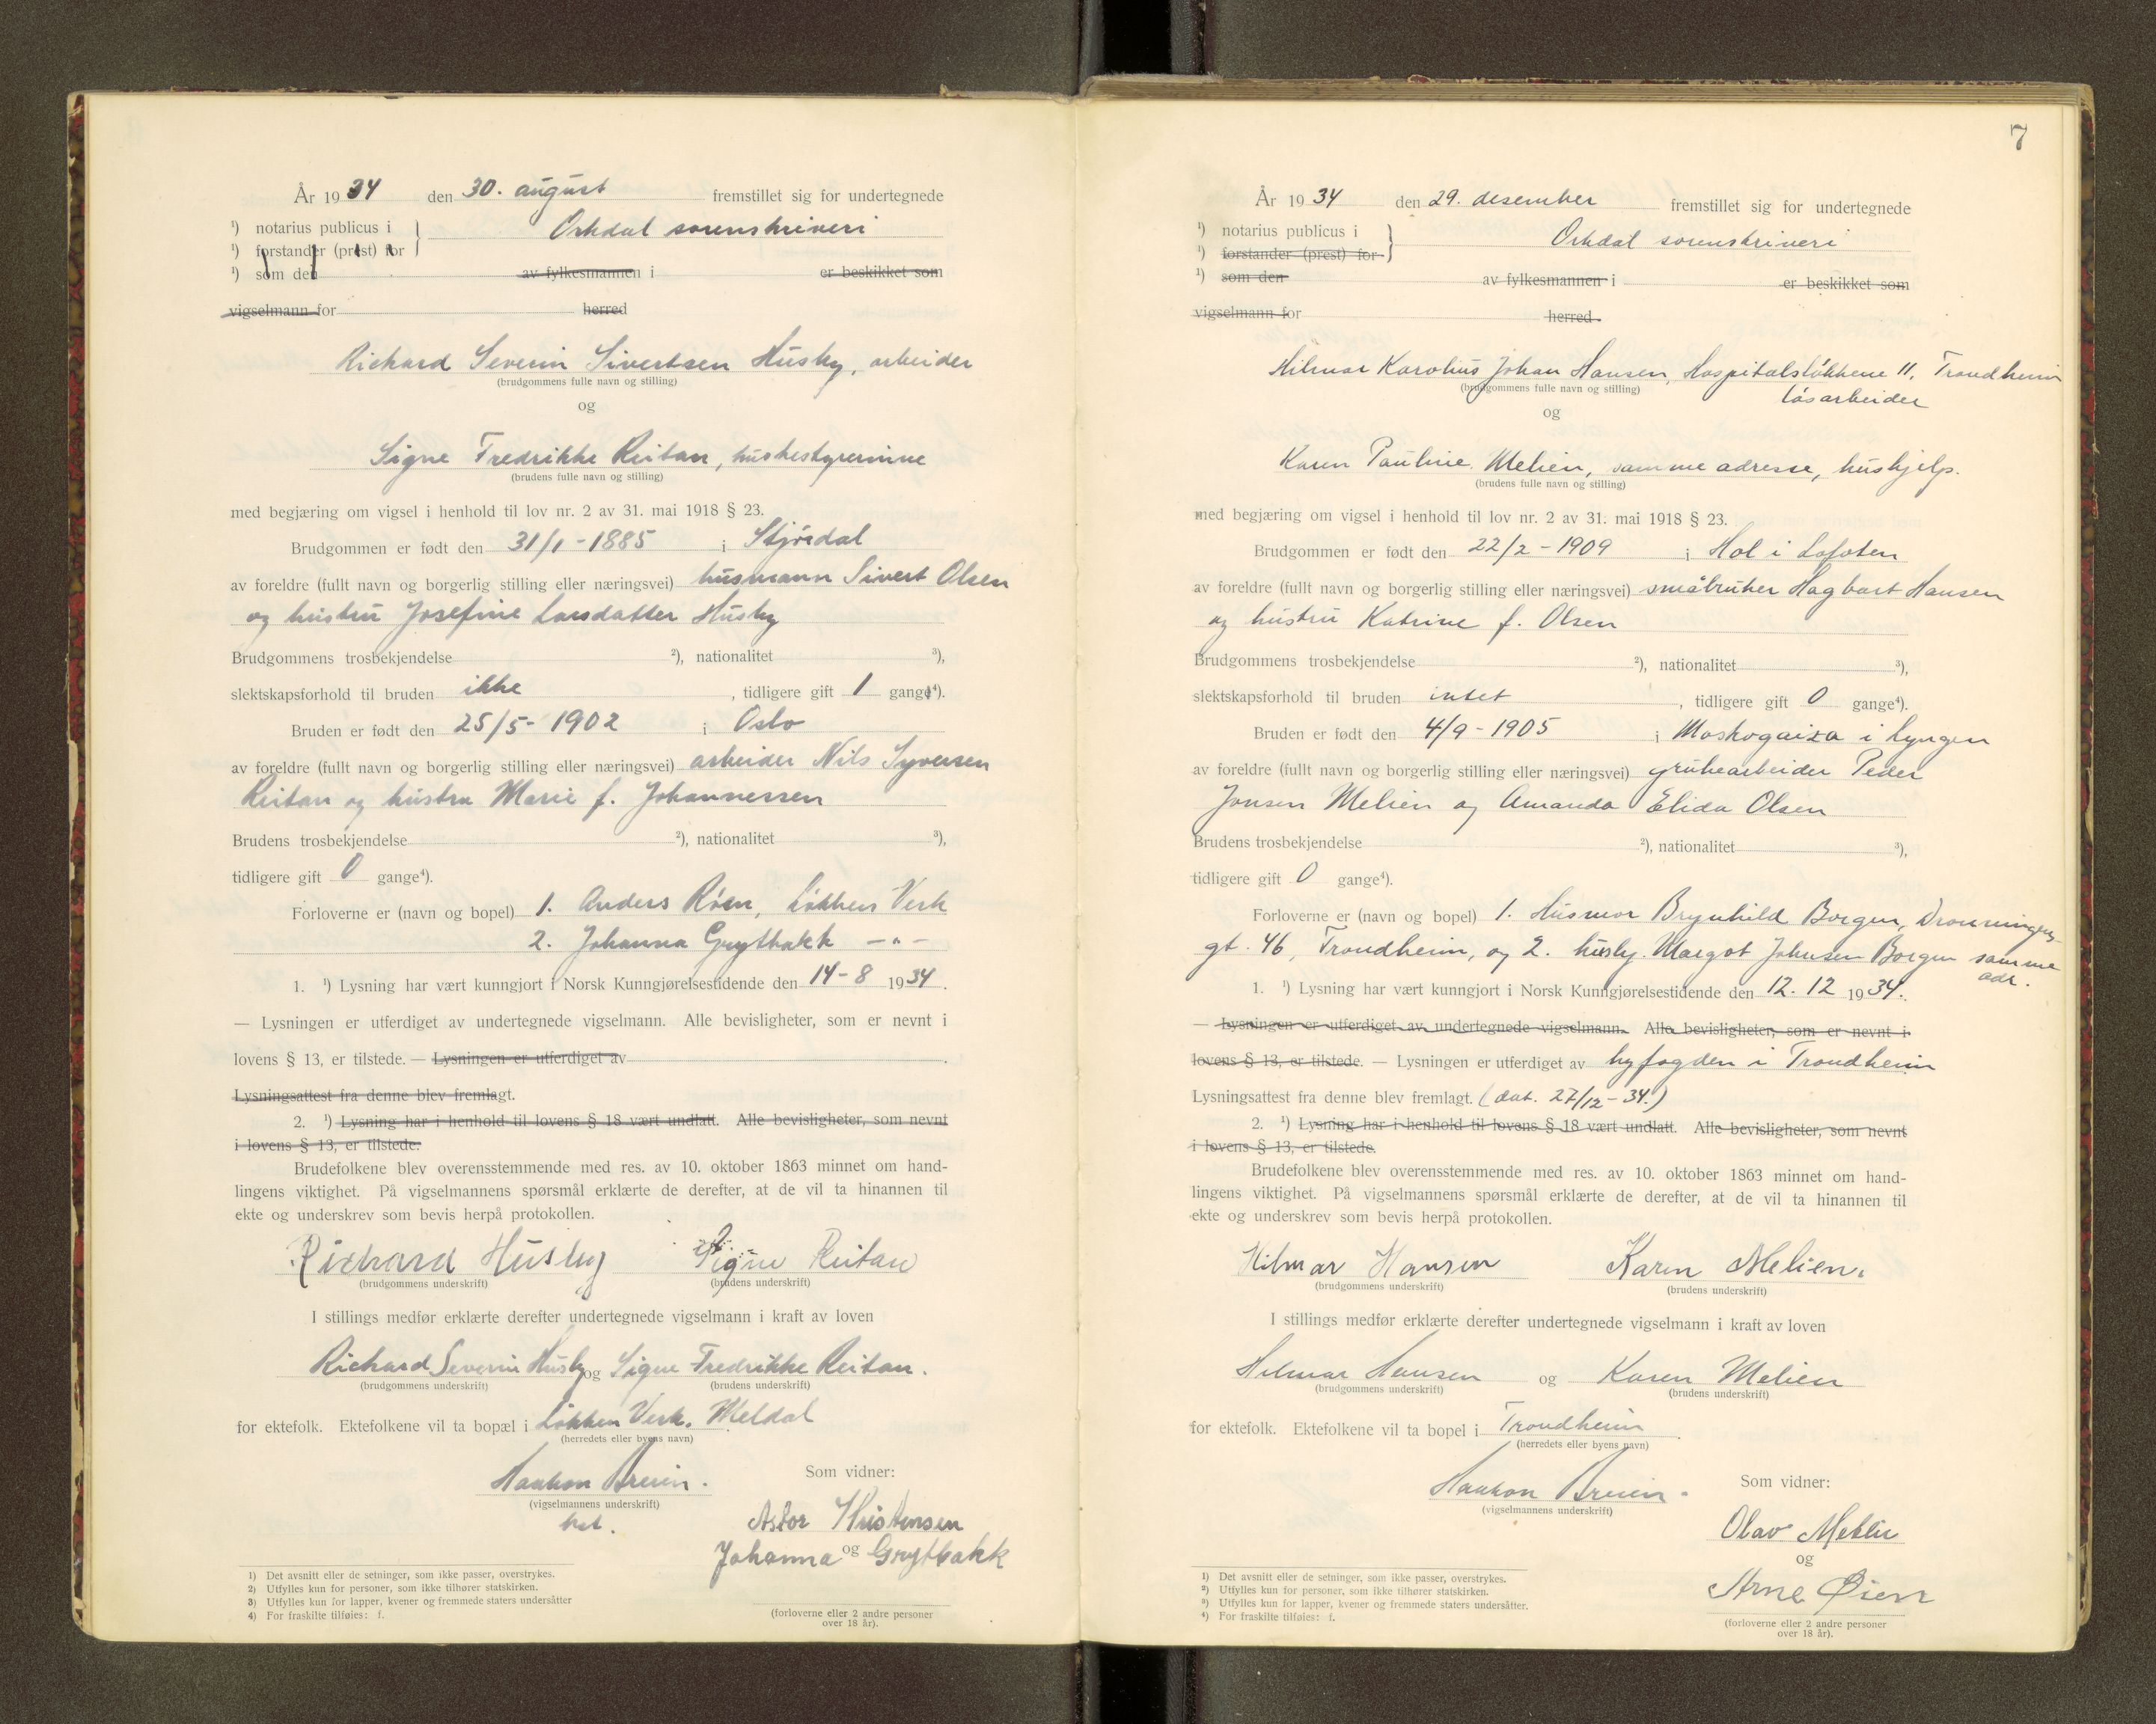 År 1934 den 30. august fremstillet sig for undertegnede
¹) notarius publicus i
Orkdal sorenskriveri
¹) forstander (prest) for
¹) som den av fylkesmannen i er beskikket som
vigselmann for herred
Richard Severin Sivertsen Husby, arbeider
(brudgommens fulle navn og stilling)
og
Signe Fredrikke Reitan, husbestyrerinne
(brudens fulle navn og stilling)
med begjæring om vigsel i henhold til lov nr. 2 av 31. mai 1918 § 23.
Brudgommen er født den 31/1 - 1885 i Stjørdal
av foreldre (fullt navn og borgerlig stilling eller næringsvei) husmann Sivert Olsen
og hustru Josefine Larsdatter Husby
Brudgommens trosbekjendelse ²), nationalitet ³),
slektskapsforhold til bruden ikke, tidligere gift 1 gang⁴).
Bruden er født den 25/5 - 1902 i Oslo
av foreldre (fullt navn og borgerlig stilling eller næringsvei) arbeider Nils Syversen
Reitan og hustru Marie f. Johannessen
Brudens trosbekjendelse ²), nationalitet ³),
tidligere gift 0 gange⁴).
Forloverne er (navn og bopel) 1. Anders Röen, Løkken Verk
2. Johanna Grytbakk - " -
1. ¹) Lysning har vært kunngjort i Norsk Kunngjørelsestidende den 14 - 8 1934.
— Lysningen er utferdiget av undertegnede vigselmann. Alle bevisligheter, som er nevnt i
lovens § 13, er tilstede. — Lysningen er utferdiget av .
Lysningsattest fra denne blev fremlagt.
2. ¹) Lysning har i henhold til lovens § 18 vært undlatt. Alle bevisligheter, som nevnt
i lovens § 13, er tilstede.
Brudefolkene blev overensstemmende med res. av 10. oktober 1863 minnet om hand-
lingens viktighet. På vigselmannens spørsmål erklærte de derefter, at de vil ta hinannen til
ekte og underskrev som bevis herpå protokollen.
Richard Husby Signe Reitan
(brudgommens underskrift) (brudens underskrift)
I stillings medfør erklærte derefter undertegnede vigselmann i kraft av loven
Richard Severin Husby og Signe Fredrikke Reitan.
(brudgommens underskrift) (brudens underskrift)
for ektefolk. Ektefolkene vil ta bopæl i Løkken Verk. Meldal
(herredets eller byens navn)
Haakon Breien.
(vigselmannens underskrift)
Som vidner:
Astor Kristensen
og
Johanna Grytbakk
(forloverne eller 2 andre personer
over 18 år).
1) Det avsnitt eller de setninger, som ikke passer, overstrykes.
2) Utfylles kun for personer, som ikke tilhører statskirken.
3) Utfylles kun for lapper, kvener og fremmede staters undersåtter
4) For fraskilte tilføies: f.
7
År 1934 den 29. desember fremstillet sig for undertegnede
¹) notarius publicus i
Orkdal sorenskriveri
¹) forstander (prest) for
¹) som den av fylkesmannen i er beskikket som
vigselmann for herred.
Hilmar Karolius Johan Hansen, Hospitalsløkkene 11, Trondheim
(brudgommens fulle navn og stilling)
løsarbeider
og
Karen Pauline Melien, samme adresse, hushjelp.
(brudens fulle navn og stilling)
med begjæring om vigsel i henhold til lov nr. 2 av 31. mai 1918 § 23.
Brudgommen er født den 22/2 - 1909 i Hol i Lofoten
av foreldre (fullt navn og borgerlig stilling eller næringsvei) småbruker Hagbart Hansen
og hustru Katrine f. Olsen
Brudgommens trosbekjendelse ²), nationalitet ³),
slektskapsforhold til bruden intet, tidligere gift 0 gange⁴).
Bruden er født den 4/9 - 1905 i Moskogaisa i Lyngen
av foreldre (fullt navn og borgerlig stilling eller næringsvei) grubearbeider Peder
Jonsen Melien og Amanda Elida Olsen
Brudens trosbekjendelse ²), nationalitet ³),
tidligere gift 0 gange⁴).
Forloverne er (navn og bopel) 1. Husmor Brynhild Borgen, Dronningens
gt. 46, Trondheim, og 2. hushj. Margot Johnsen Borgen samme
adr.
1. ¹) Lysning har vært kunngjort i Norsk Kunngjørelsestidende den 12. 12 1934.
— Lysningen er utferdiget av undertegnede vigselmann. Alle bevisligheter, som er nevnt i
lovens § 13, er tilstede. — Lysningen er utferdiget av byfogden i Trondheim
Lysningsattest fra denne blev fremlagt. (dat. 27/12 - 34.)
2. ¹) Lysning har i henhold til lovens § 18 vært undlatt. Alle bevisligheter, som nevnt
i lovens § 13, er tilstede.
Brudefolkene blev overensstemmende med res. av 10. oktober 1863 minnet om hand-
lingens viktighet. På vigselmannens spørsmål erklærte de derefter, at de vil ta hinannen til
ekte og underskrev som bevis herpå protokollen.
Hilmar Hansen Karen Melien.
(brudgommens underskrift) (brudens underskrift)
I stillings medfør erklærte derefter undertegnede vigselmann i kraft av loven
Hilmar Hansen og Karen Melien
(brudgommens underskrift) (brudens underskrift)
for ektefolk. Ektefolkene vil ta bopel i Trondheim
(herredets eller byens navn)
Haakon Breien.
(vigselmannens underskrift)
Som vidner:
Olav
og
Arne Øien
(forloverne eller 2 andre personer
over 18 år).
1) Det avsnitt eller de setninger, som ikke passer, overstrykes.
2) Utfylles kun for personer, som ikke tilhører statskirken.
3) Utfylles kun for lapper, kvener og fremmede staters undersåtter.
4) For fraskilte tilføies: f.